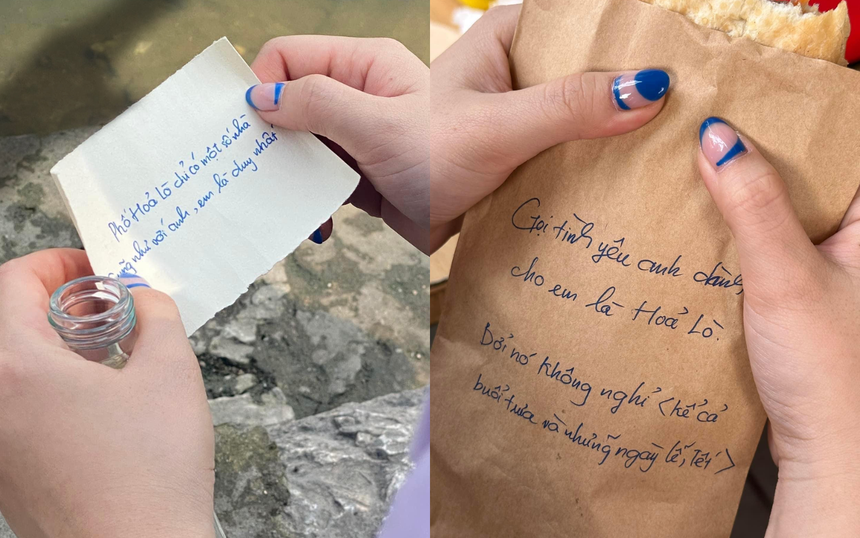 Phố Hoả Lò chỉ có một số nhà
Cũng như với anh, em là duy nhất
Gọi tình yêu anh dành
cho em là Hoả Lò.
Bởi nó không nghỉ <kể cả
buổi trưa và những ngày lễ, Tết>